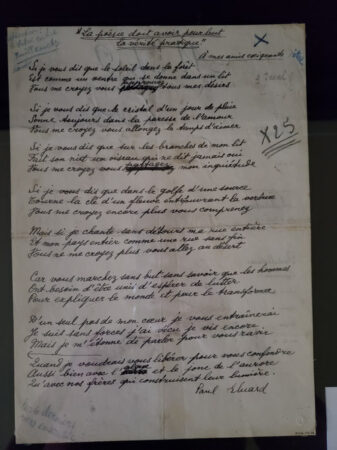 "La poésie doit avoir pour but
la vérité pratique"
A mes amis exigeants
Si je vous dis que le soleil dans la forêt
Est comme un ventre qui se donne dans un lit
Vous me croyez vous approuvez tous mes désirs
Si je vous dis que le cristal d'un jour de pluie
Sonne toujours dans la paresse de l'amour
Vous me croyez vous allongez le temps d'aimer
X25
Si je vous dis que sur les branches de mon lit
Fait son nid un oiseau qui ne dit jamais oui
Vous me croyez vous partagez mon inquiétude
Si je vous dis que dans le golfe d'une source
Tourne la clé d'un fleuve entr'ouvrant la verdure
Vous me croyez encore plus vous comprenez
Mais si je chante sans détours ma rue entière
Et mon pays entier comme une rue sans fin
Vous ne me croyez plus vous allez au désert
Car vous marchez sans but sans savoir que les hommes
Ont besoin d'être unis d'espérer de lutter
Pour expliquer le monde et pour le transformer
D'un seul pas de mon cœur je vous entraînerai
Je suis sans forces j'ai vécu je vis encore
Mais je m'étonne de parler pour vous ravir
Quand je voudrais vous libérer pour vous confondre
Aussi bien avec l'algue et le jonc de l'aurore
Qu'avec nos frères qui construisent leur lumière.
Paul Eluard